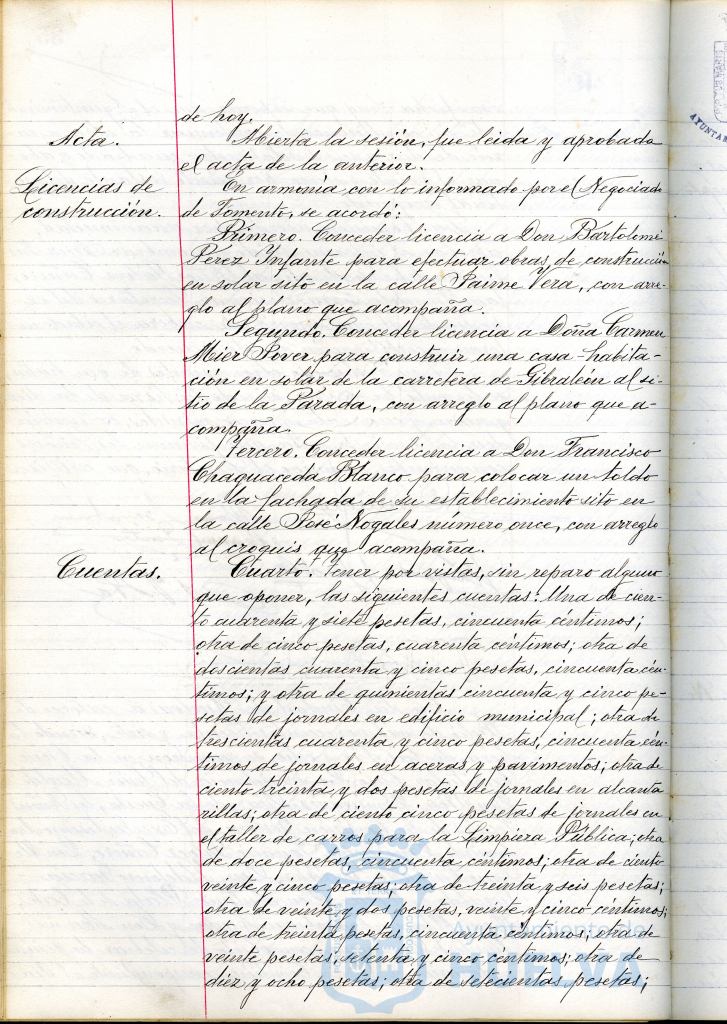 de hoy.
Acta.
Abierta la sesión, fue leida y aprobada
el acta de la anterior.
Licencias de
construcción.
En armonía con lo informado por el Negociado
de Fomento, se acordó:
Primero. Conceder licencia a Don Bartolomé
Pérez Infante para efectuar obras de construcción
en solar sito en la calle Jaime Vera, con arre-
glo al plano que acompaña.
Segundo. Conceder licencia a Doña Carmen
Mier Jover para construir una casa-habita-
ción en solar de la carretera de Gibraleón al si-
tio de la Parada, con arreglo al plano que a-
compaña.
Tercero. Conceder licencia a Don Francisco
Chaguaceda Blanco para colocar un toldo
en la fachada de su establecimiento sito en
la calle José Nogales número once, con arreglo
al croquis que acompaña.
Cuentas.
Cuarto. Tener por vistas, sin reparo alguno
que oponer, las siguientes cuentas: Una de cien-
to cuarenta y siete pesetas, cincuenta céntimos;
otra de cinco pesetas, cuarenta céntimos; otra de
doscientas cuarenta y cinco pesetas, cincuenta cén-
timos; y otra de quinientas cincuenta y cinco pe-
setas de jornales en edificio municipal; otra de
trescientas cuarenta y cinco pesetas, cincuenta cén-
timos de jornales en aceras y pavimentos; otra de
ciento treinta y dos pesetas de jornales en alcanta
rillas; otra de ciento cinco pesetas de jornales en
el taller de carros para la Limpieza Pública; otra
de doce pesetas, cincuenta céntimos; otra de ciento
veinte y cinco pesetas; otra de treinta y seis pesetas;
otra de veinte y dos pesetas, veinte y cinco céntimos;
otra de treinta pesetas, cincuenta céntimos; otra de
veinte pesetas, setenta y cinco céntimos; otra de
diez y ocho pesetas; otra de setecientas pesetas;
HUELVA
AYUNTA